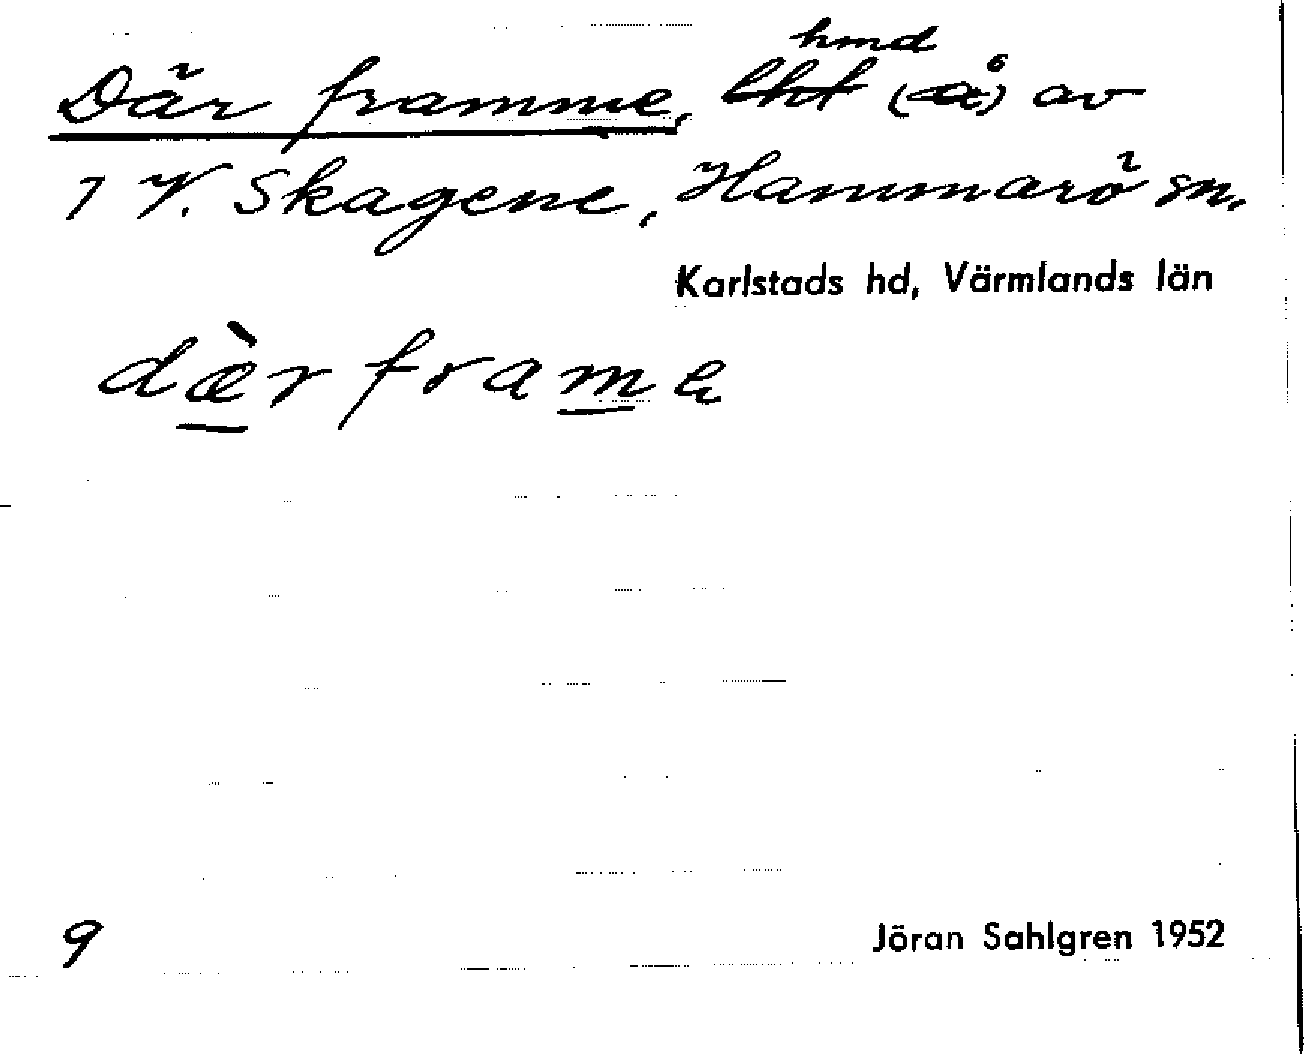 hmd
Där framme, lht (å) av
1 V. Skagene, Hammarö sn.
Karlstads hd, Värmlands län
dæ̀r frame
9
Jöran Sahlgren 1952